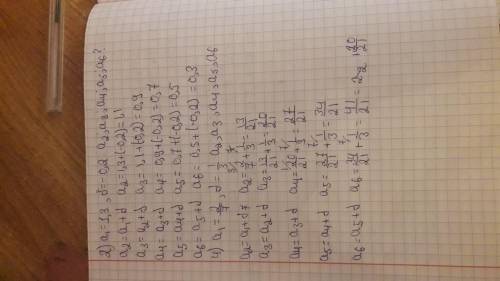 2) a₁=1,3, d=-0,2 a₂,a₃,a₄,a₅,a₆?
a₂=a₁+d a₂=1,3+(-0,2)=1,1
a₃=a₂+d a₃=1,1+(-0,2)=0,9
a₄=a₃+d a₄=0,9+(-0,2)=0,7
a₅=a₄+d a₅=0,7+(-0,2)=0,5
a₆=a₅+d a₆=0,5+(-0,2)=0,3
4) a₁=2/7, d=1/3 a₂,a₃,a₄,a₅,a₆
a₂=a₁+d a₂=2/7+1/3=13/21
a₃=a₂+d a₃=13/21+1/3=20/21
a₄=a₃+d a₄=20/21+1/3=27/21
a₅=a₄+d a₅=27/21+1/3=34/21
a₆=a₅+d a₆=34/21+1/3=41/21